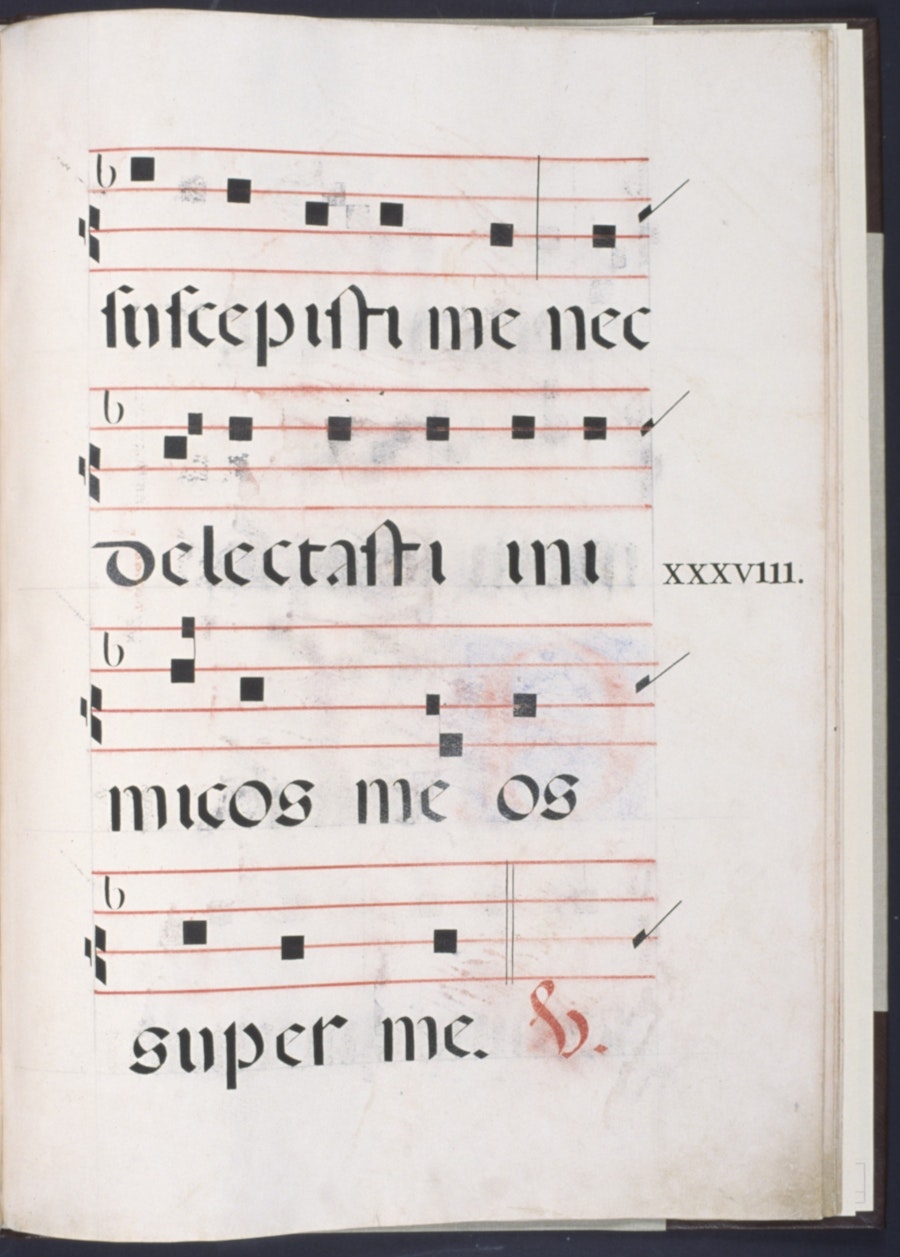 suscepisti me nec
delectasti ini
XXXVIII.
micos me os
super me. V.